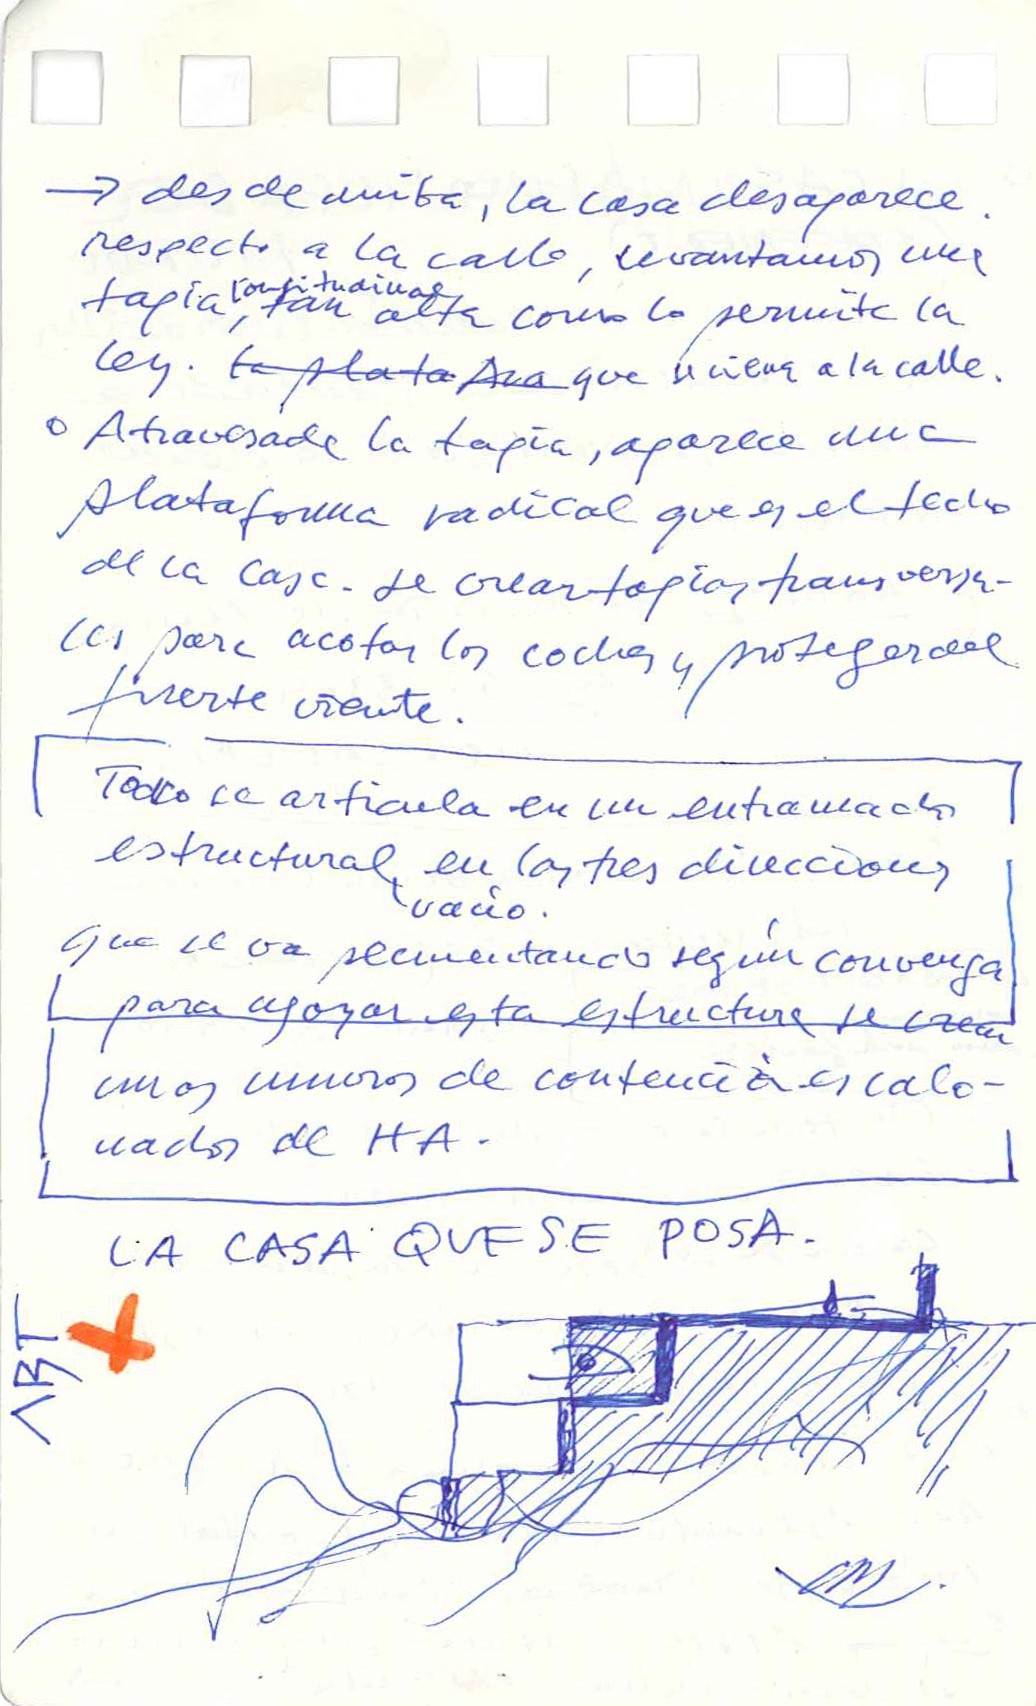 → desde arriba, la casa desaparece.
respecto a la calle, levantamos una
tapia longitudinal, tan alta como lo permite la
ley. la plataforma que viene a la calle.
o Atravesada la tapia, aparece una
plataforma radical que es el techo
de la casa. se crean tapias transversa-
les para acotar los coches y proteger del
fuerte viento.
Todo se articula en un entramado
estructural, en las tres direcciones
vacío.
que se va segmentando según convenga
para apoyar esta estructura se crean
unos muros de contención escalo-
nados de HA.
LA CASA QUE SE POSA.
ABT